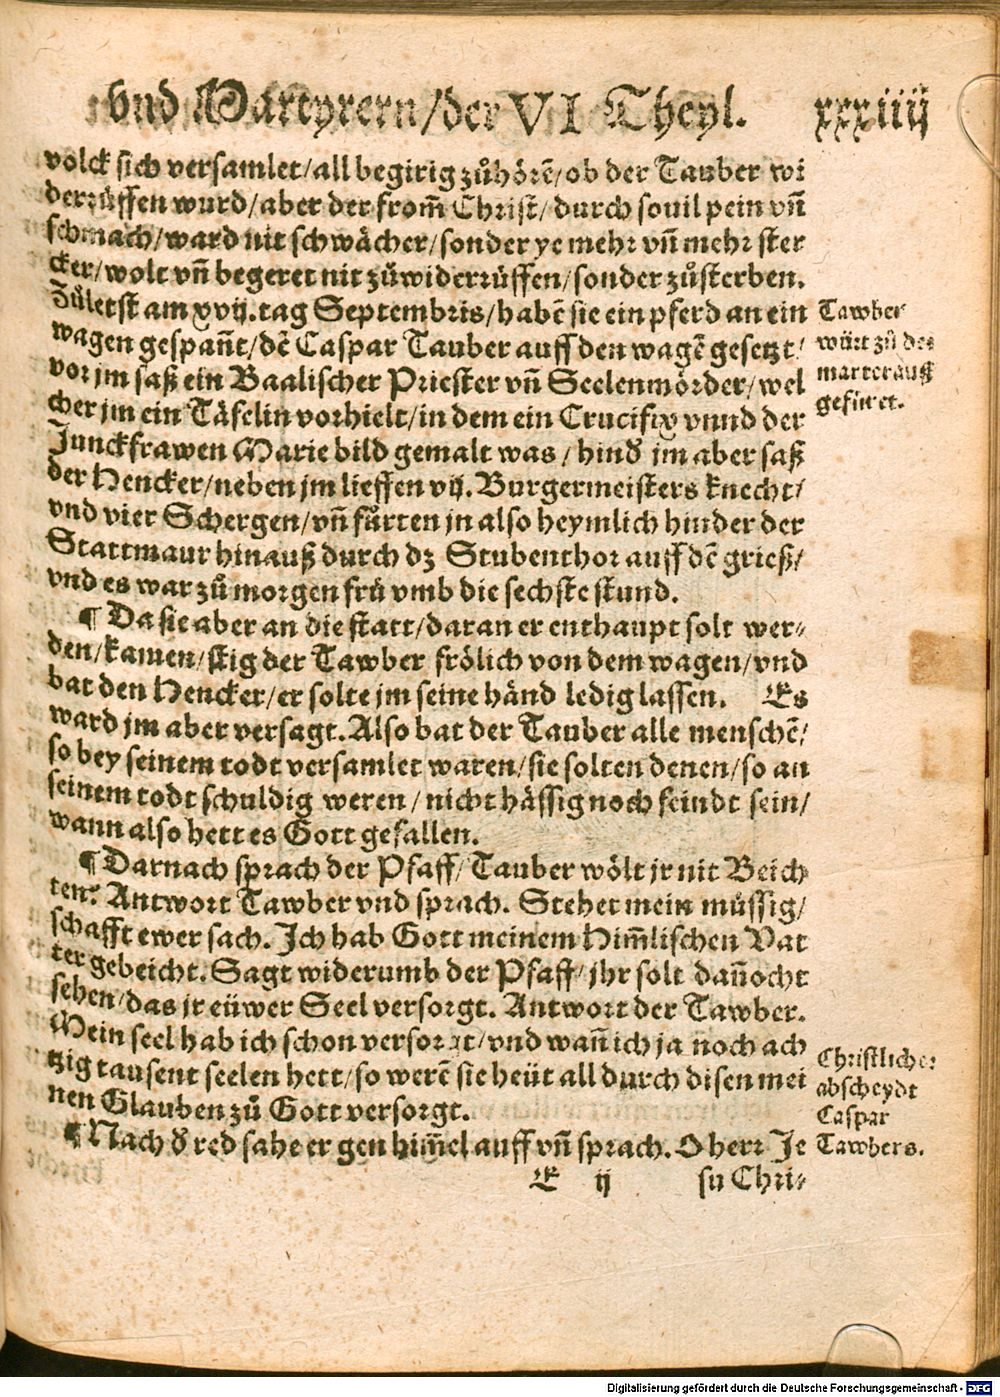 vnd Martyrern/der VI Theyl. xxxiiij
volck sich versamlet/all begirig zůhörẽ/ob der Tauber wi
derrůffen wurd/aber der from̃ Christ/durch souil pein vñ
schmach/ward nit schwächer/sonder ye mehr vñ mehr ster
cker/wolt vñ begeret nit zůwiderrůffen/sonder zůsterben.
Zůletst am xvij. tag Septembris/habẽ sie ein pferd an ein
wagen gespañt/dẽ Caspar Tauber auff den wagẽ gesetzt/
vor jm saß ein Baalischer Priester vñ Seelenmörder/wel
cher jm ein Täfelin vorhielt/in dem ein Crucifix vnnd der
Junckfrawen Marie bild gemalt was/hinď jm aber saß
der Hencker/neben jm lieffen vij. Burgermeisters knecht/
vnd vier Schergen/vñ fůrten jn also heymlich hinder der
Stattmaur hinauß durch dz Stubenthor auff dẽ grieß/
vnd es war zů morgen frů vmb die sechste stund.
¶ Da sie aber an die statt/daran er enthaupt solt wer-
den/kamen/stig der Tawber frölich von dem wagen/vnd
bat den Hencker/er solte jm seine händ ledig lassen. Es
ward jm aber versagt. Also bat der Tauber alle menschẽ/
so bey seinem todt versamlet waren/sie solten denen/so an
seinem todt schuldig weren/nicht hässig noch feindt sein/
wann also hett es Gott gefallen.
¶ Darnach sprach der Pfaff/Tauber wölt jr nit Beich
ten? Antwort Tawber vnd sprach. Stehet mein müssig/
schafft ewer sach. Ich hab Gott meinem Him̃lischen Vat
ter gebeicht. Sagt widerumb der Pfaff/jhr solt dañocht
sehen/das jr eüwer Seel versorgt. Antwort der Tawber.
Mein seel hab ich schon versorgt/vnd wañ ich ja noch ach
tzig tausent seelen hett/so werẽ sie heüt all durch disen mei
nen Glauben zů Gott versorgt.
¶ Nach ď red sahe er gen him̃el auff vñ sprach. O herr Je
E ij su Chri-
Tawber
würt zů der
marter auß
gefüret.
Christlicher
abscheydt
Caspar
Tawbers.
Digitalisierung gefördert durch die Deutsche Forschungsgemeinschaft - DFG